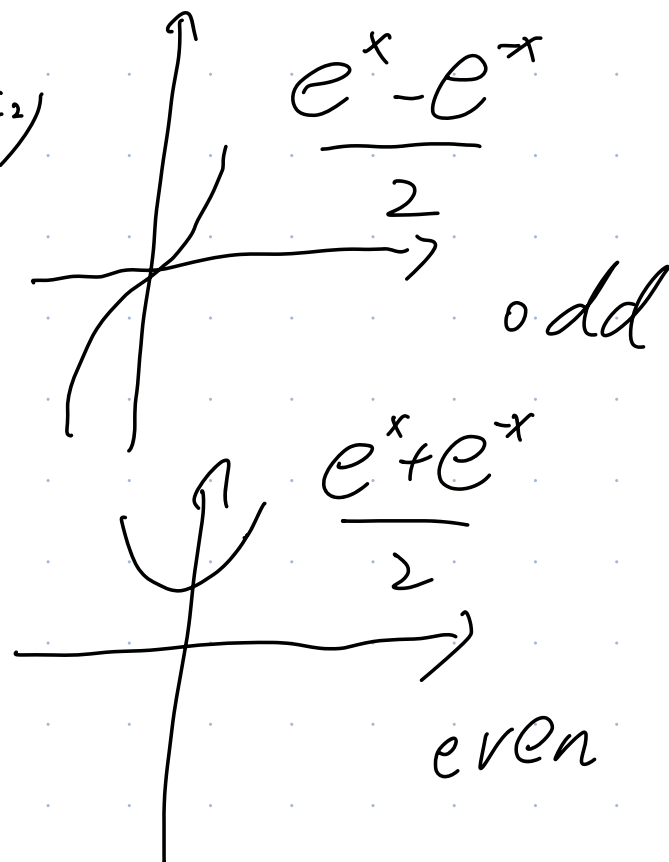 2)
e^x - e^-x
2
odd
e^x + e^-x
2
even